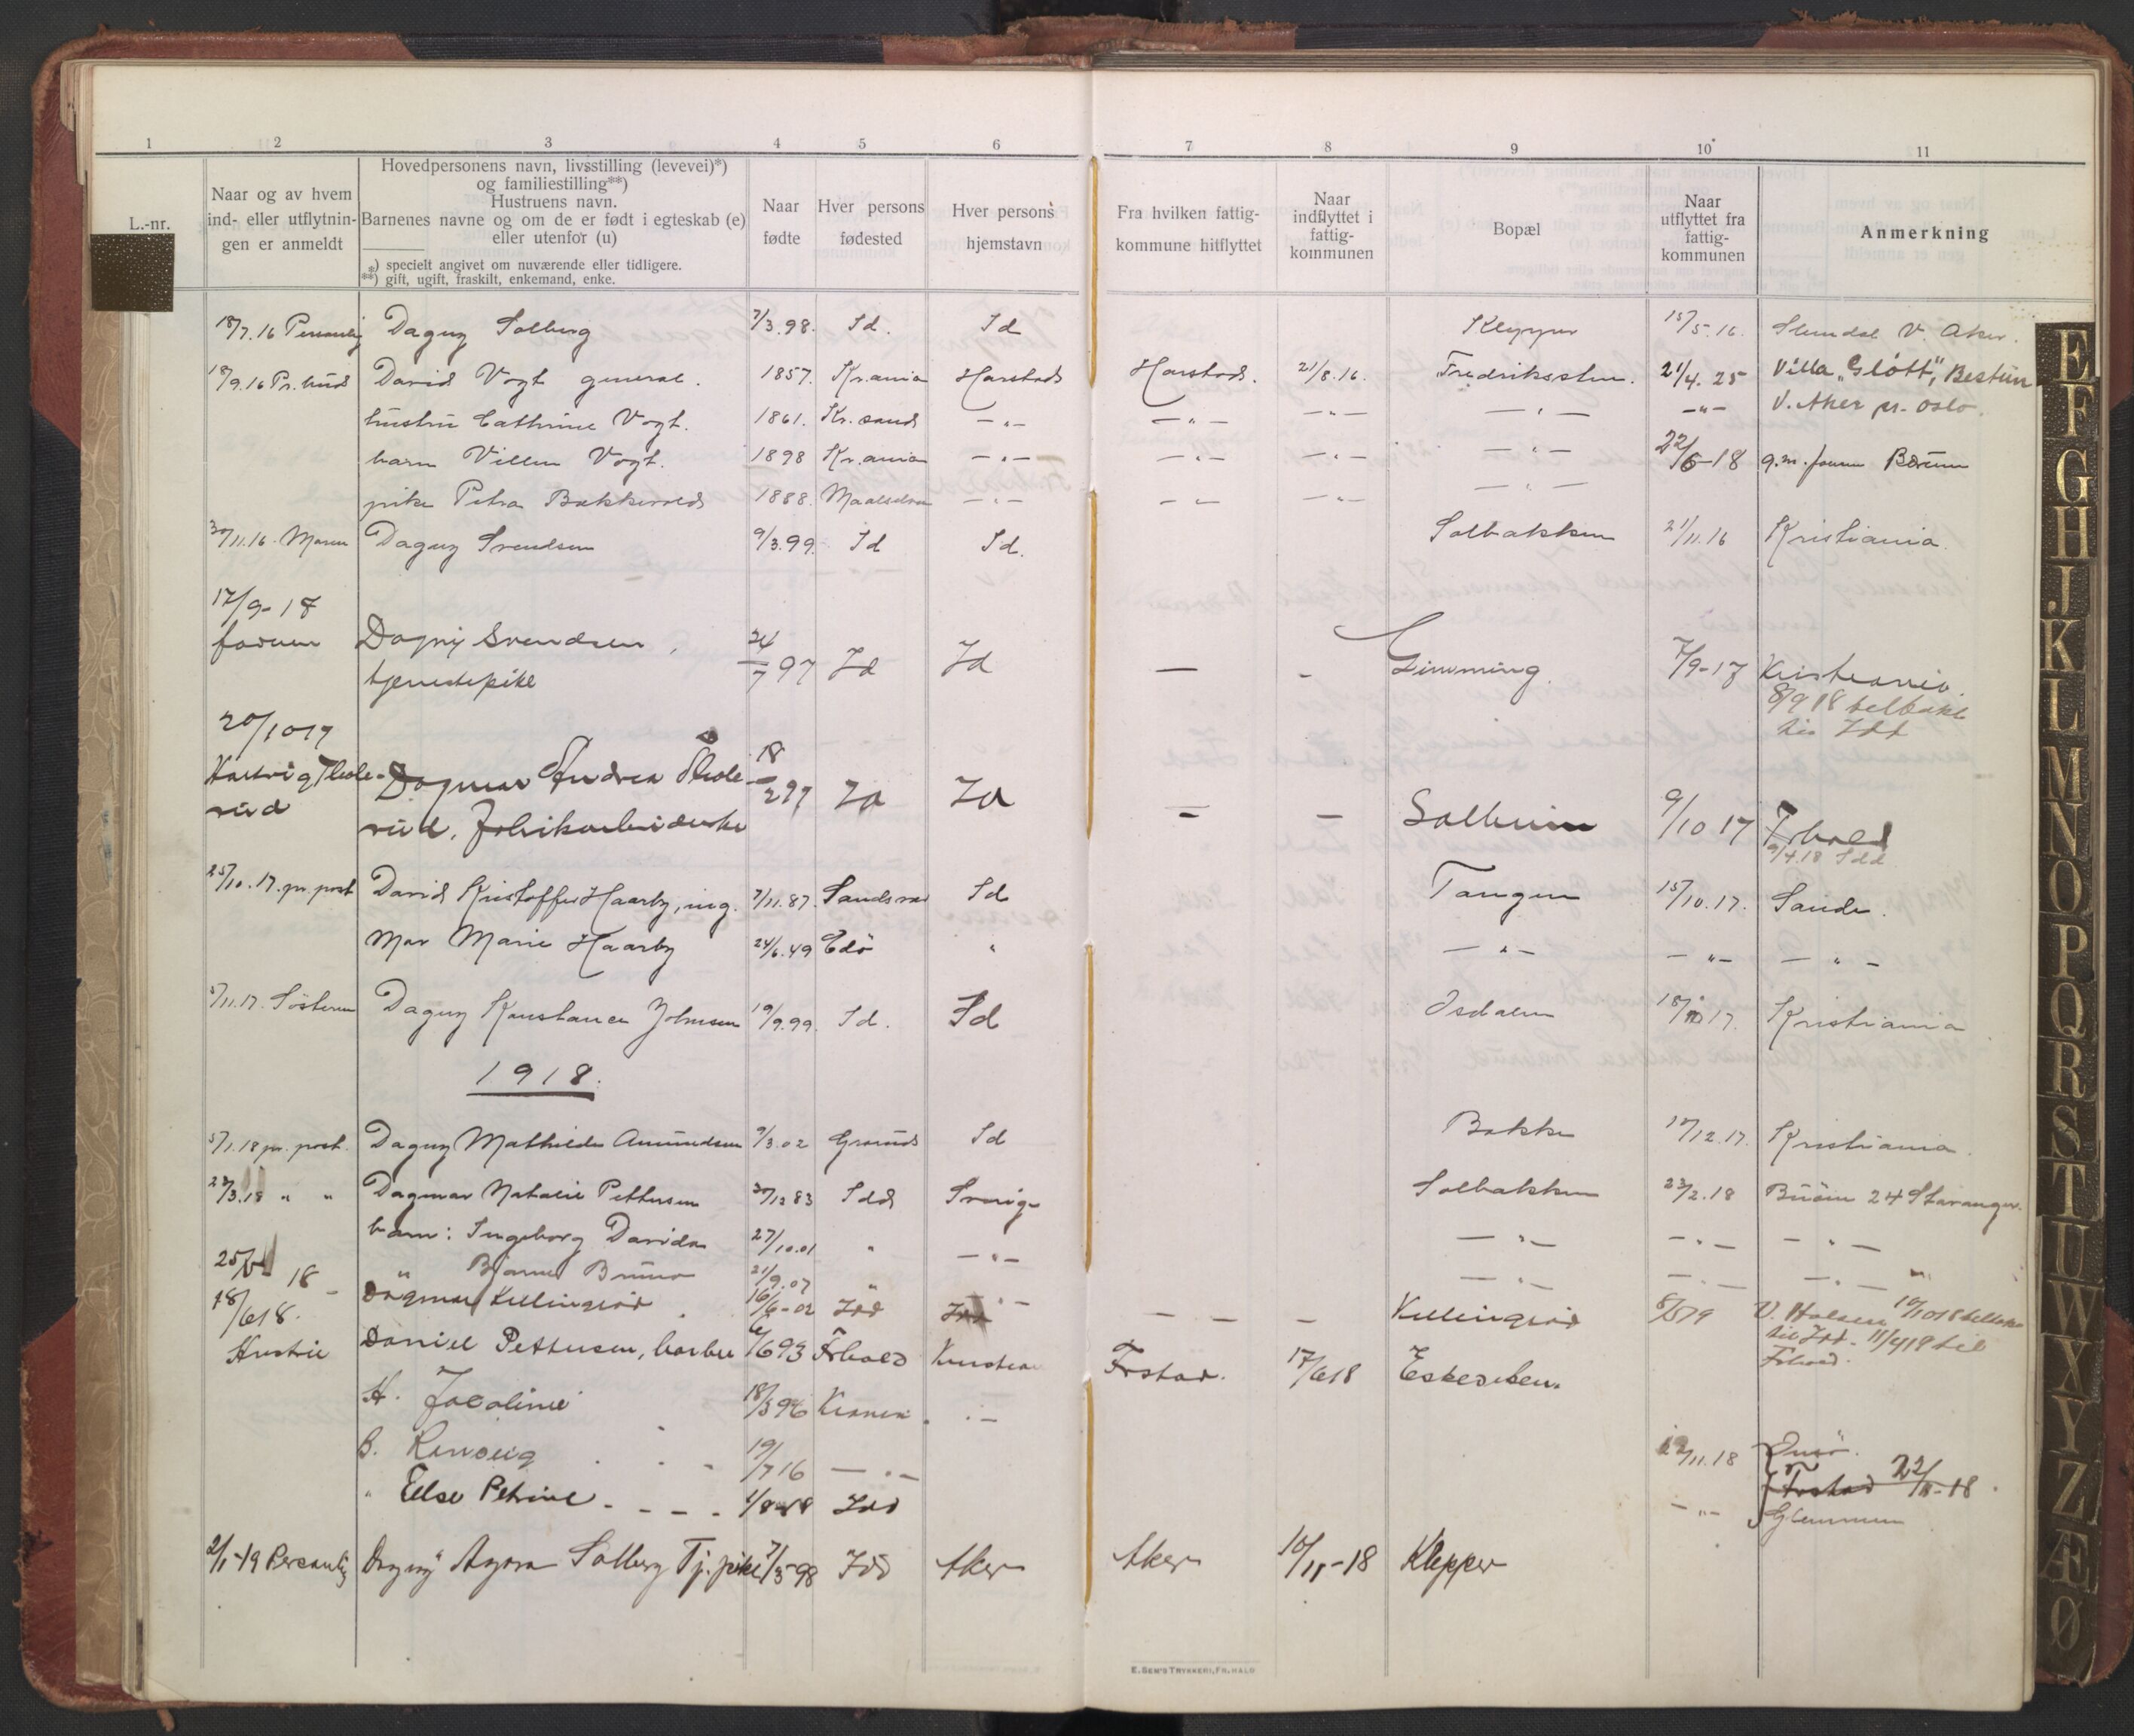 1 2 3 4 5 6 7 8 9 10 11
L.-nr.
Naar og av hvem
ind- eller utflytnin-
gen er anmeldt
Hovedpersonens navn, livsstilling (levevei)*)
og familiestilling**)
Hustruens navn.
Barnenes navne og om de er født i egteskab (e)
eller utenfor (u)
*) specielt angivet om nuværende eller tidligere.
**) gift, ugift, fraskilt, enkemand, enke.
Naar
fødte
Hver persons
fødested
Hver persons
hjemstavn
Fra hvilken fattig-
kommune hitflyttet
Naar
indflyttet i
fattig-
kommunen
Bopæl
Naar
utflyttet fra
fattig-
kommunen
Anmerkning
18/7.16 Personlig Dagny Solberg 7/3.98. Id. Id Klepper 15/5.16. Slemdal V. Aker.
18/9.16 Pr. bud David Vogt general. 1857. Kr.ania Harstad Harstad. 21/8.16. Fredriksten. 21/4.25 Villa "Gløtt", Bestun
hustru Cathrine Vogt. 1861. Kr.sand —"— —"— —"— —"— —"— V. Aker pr. Oslo.
barn Vogt. 1898 Kr.ania —"— —"— —"— —"— 22/6-18 Bærum
pike Petra Bakkevold 1888. Maalselven —"— —"— —"— —"—
30/11.16. Moren Dagny Svendsen 9/3.99. Id Id. Solbakken 21/11.16 Kristiania.
17/9-17
faderen Dagny Svendsen, 24/7 97 Id Id — - Gimming. 7/9-17 Kristiania.
tjenestepike 8/9 18 tilbake
til Idd
20/10 17
Hartvig Thole- Dagmar Andrea Thole- 18/2 97 Id Id — — Solheim 9/10 17 Frhald
rud rud, Fabrikarbeiderske 9/4.18 Idd
25/10.17. pr. post David Kristoffer Haarby, ing. 7/11.87. Sandsvær Id Tangen 15/10.17. Sande.
Mor Marie Haarby 24/6.49 Edø " —"— —"— —"—
5/11.17. Søsteren Dagny Konstance Johnsen 19/9.99. Id. Id Isdalen 18/10 17. Kristiania
1918.
5/1.18 pr. post. Dagny Mathilde Amundsen 9/3.02 Grorud Id Bakke 17/12.17. Kristiania.
23/3.18 " " Dagmar Natalie Pettersen 30/12 83 Idd Sverige Solbakken 23/2.18 Buøen 24 Stavanger.
barn: Ingeborg Davida 27/10.01 " —"— —"— —"— —"—
" Bjarne Bruno 21/9.07 " —"— —"— —"— —"—
25/6 18 - Dagmar Killingrød 16/6-02 Idd Idd — — — Killingrød 8/5 19 10/10 18 tilbake
18/6 18. til Idd - 11/4 19 til
Hustru Daniel Pettersen, barber 6/6 93 Frhald Kristiania Frstad. 17/6 18 Eskeviken. Frhald.
H. Jacoline 18/3 96 Kr.ania. "—
B. Ranveig 19/7 16 —"— 22/11.18 Onsø.
" Else Petrine 1/8 18 Idd —"— Frstad 22/11-18.
Glemmen
2/1-19 Personlig Dagny Agora Solberg Tj. pike 7/3-98 Idd Aker Aker 10/11-18 Klepper
E. SEM'S TRYKKERI, FR.HALD
E
F
G
H
J
K
L
M
N
O
P
Q
R
S
T
U
W
X
Y
Z
Æ
Ø